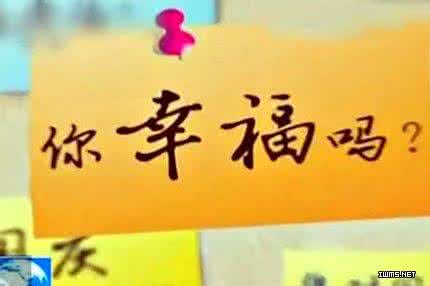 你幸福吗?
国庆
IWMS.NET